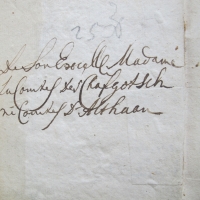 2508
de Son Excelle Madame
la Comtesse de Chafgotsch
né Comtesse d'Althaan